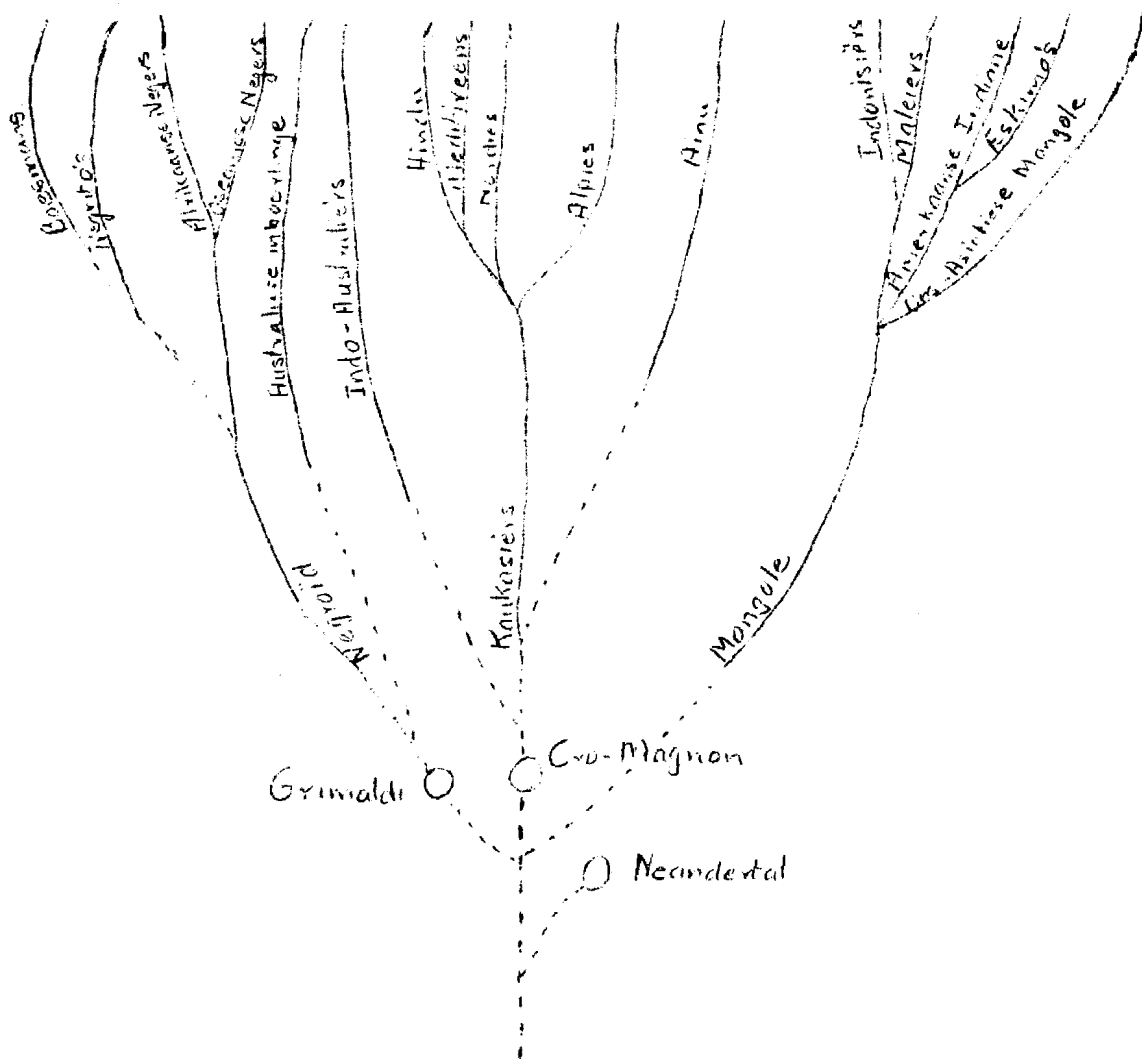 Boesmans
Negrito's
Afrikaanse Negers
Oseaniese Negers
Australiese inboorlinge
Indo-Australiërs
Hindu
Nordies
Alpies
Ainu
Indonisiërs
Maleiers
Amerikaanse Indiane
Eskimo's
Mongole
Negroïd
Kaukasiërs
Mongole
Grimaldi
Cro-Magnon
Neandertal